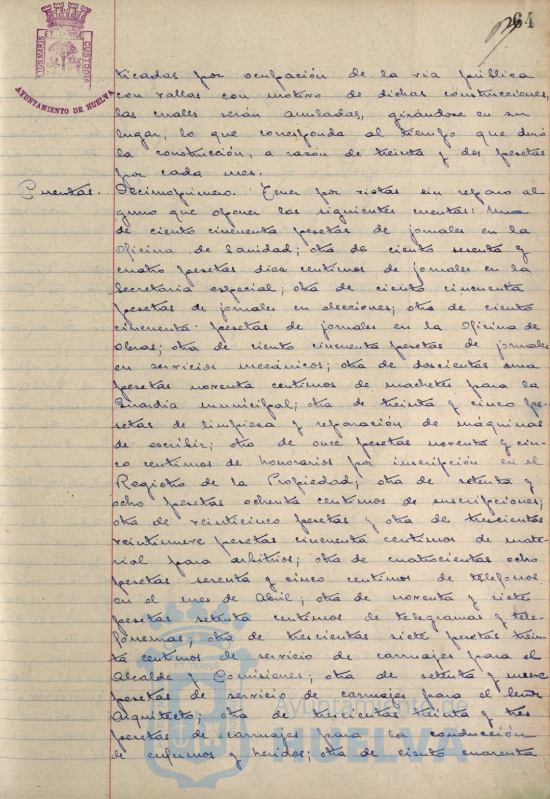 264
AYUNTAMIENTO DE HUELVA
ticadas por ocupación de la via pública
con vallas con motivo de dichas construcciones,
las cuales serán anuladas, girándose en su
lugar, lo que corresponda al tiempo que duró
la construcción, a razón de treinta y dos pesetas
por cada mes.
Cuentas. Decimoprimero. Tener por vistas sin reparo al-
guno que oponer las siguientes cuentas: Una
de ciento cincuenta pesetas de jornales en la
Oficina de Sanidad; otra de ciento sesenta y
cuatro pesetas diez centimos de jornales en la
Secretaria especial; otra de ciento cincuenta
pesetas de jornales en elecciones; otra de ciento
cincuenta pesetas de jornales en la Oficina de
Obras; otra de ciento cincuenta pesetas de jornales
en servicios mecánicos; otra de doscientas una
pesetas noventa centimos de machetes para la
Guardia municipal; otra de treinta y cinco pe-
setas de limpieza y reparación de máquinas
de escribir; otra de once pesetas noventa y cin-
co centimos de honorarios por inscripción en el
Registro de la Propiedad; otra de setenta y
ocho pesetas ochenta centimos de suscripciones;
otra de veinticinco pesetas y otra de trescientas
veintinueve pesetas cincuenta centimos de mate-
rial para arbitrios; otra de cuatrocientas ocho
pesetas setenta y cinco centimos de telefonos
en el mes de Abril; otra de noventa y siete
pesetas setenta centimos de telegramas y tele-
fonemas; otra de trescientas siete pesetas trein-
ta centimos de servicio de carruajes para el
Alcalde y Comisiones; otra de setenta y nueve
pesetas de servicio de carruajes para el Señor
Arquitecto; otra de trescientas treinta y tres
pesetas de carruajes para la conducción
de enfermos y heridos; otra de ciento cuarenta
Ayuntamiento de
HUELVA